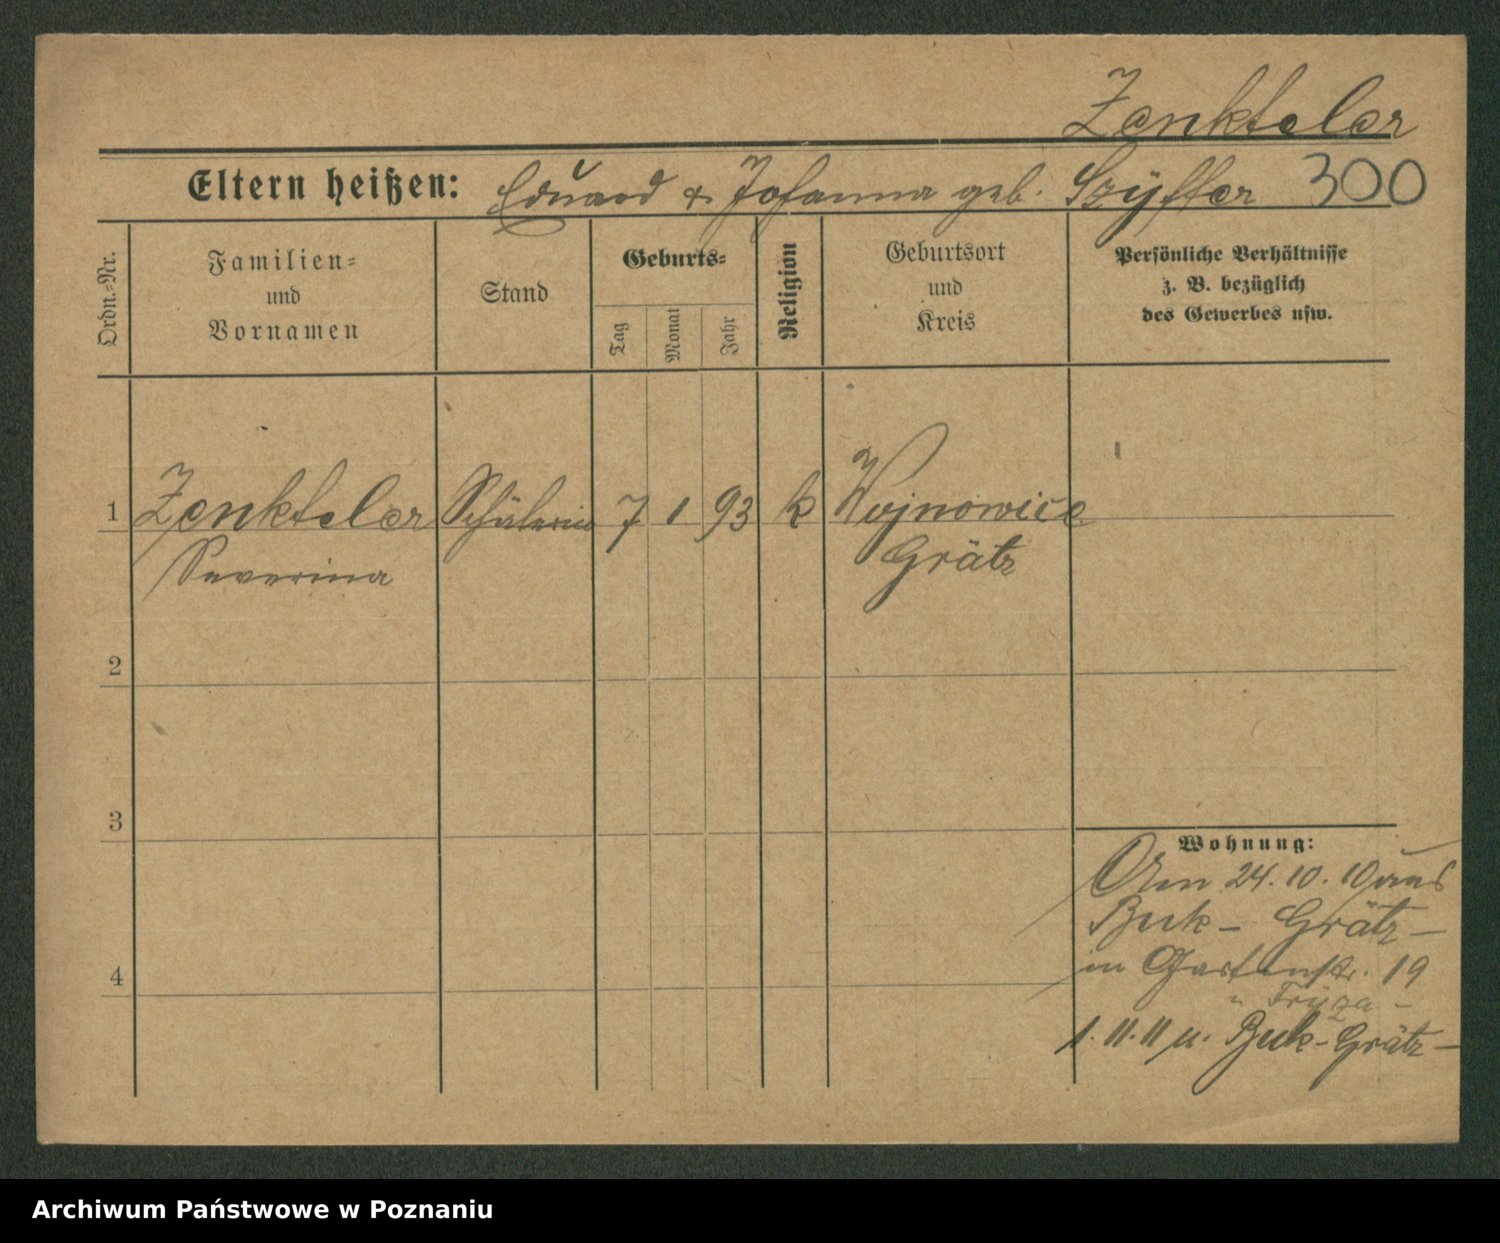 Zenkteler
Eltern heißen: Eduard & Johanna geb. Szyfter 300
Ordn.-Nr.
Familien-
und
Vornamen
Stand
Geburts-
Tag
Monat
Jahr
Religion
Geburtsort
und
Kreis
Persönliche Verhältnisse
z. B. bezüglich
des Gewerbes usw.
1 Zenkteler Schülerin 7 1 93 k Wojnowice
Severina Grätz
2
3
4
Wohnung:
Am 24. 10. 10 aus
Buk – Grätz –
in Gartenstr. 19
1. 11. 11 n. Buk – Grätz –
Archiwum Państwowe w Poznaniu